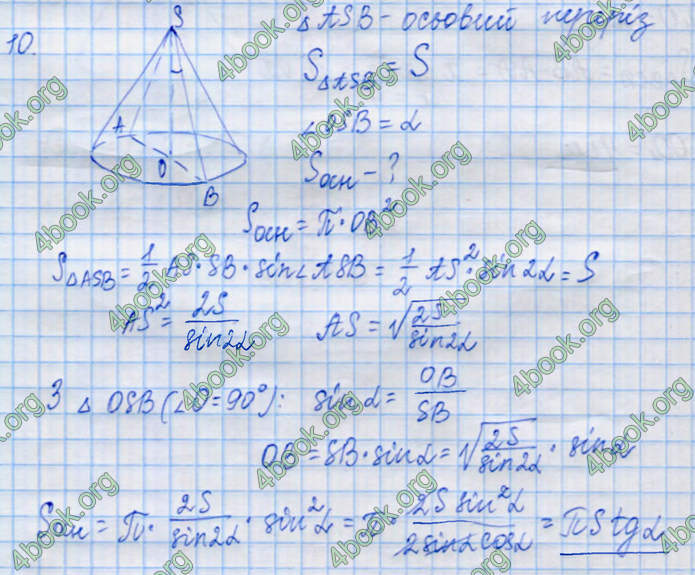 10.
△ASB - осьовий переріз
S△ASB = S
∠OSB = α
Sосн - ?
S
A
O
B
Sосн = π · OB²
S△ASB = 1/2 AS · SB · sin∠ASB = 1/2 AS² · sin2α = S
AS² = 2S/sin2α AS = √(2S/sin2α)
З △ OSB (∠O = 90°): sinα = OB/SB
OB = SB · sinα = √(2S/sin2α) · sinα
Sосн = π · 2S/sin2α · sin²α = π · 2S sin²α/2sinαcosα = πS tgα
4book.org